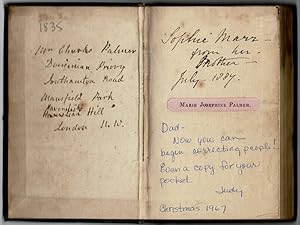 1835
Mrs Charles Palmer
Dominican Priory
Southampton Road
Mansfield Park
Haverstock Hill
London N.W.
Sophie Mars
from her
Brother
July 1887.
MARIE JOSEPHINE PALMER.
Dad-
Now you can
begin correcting people!
Even a copy for your
pocket.
Judy
Christmas 1967